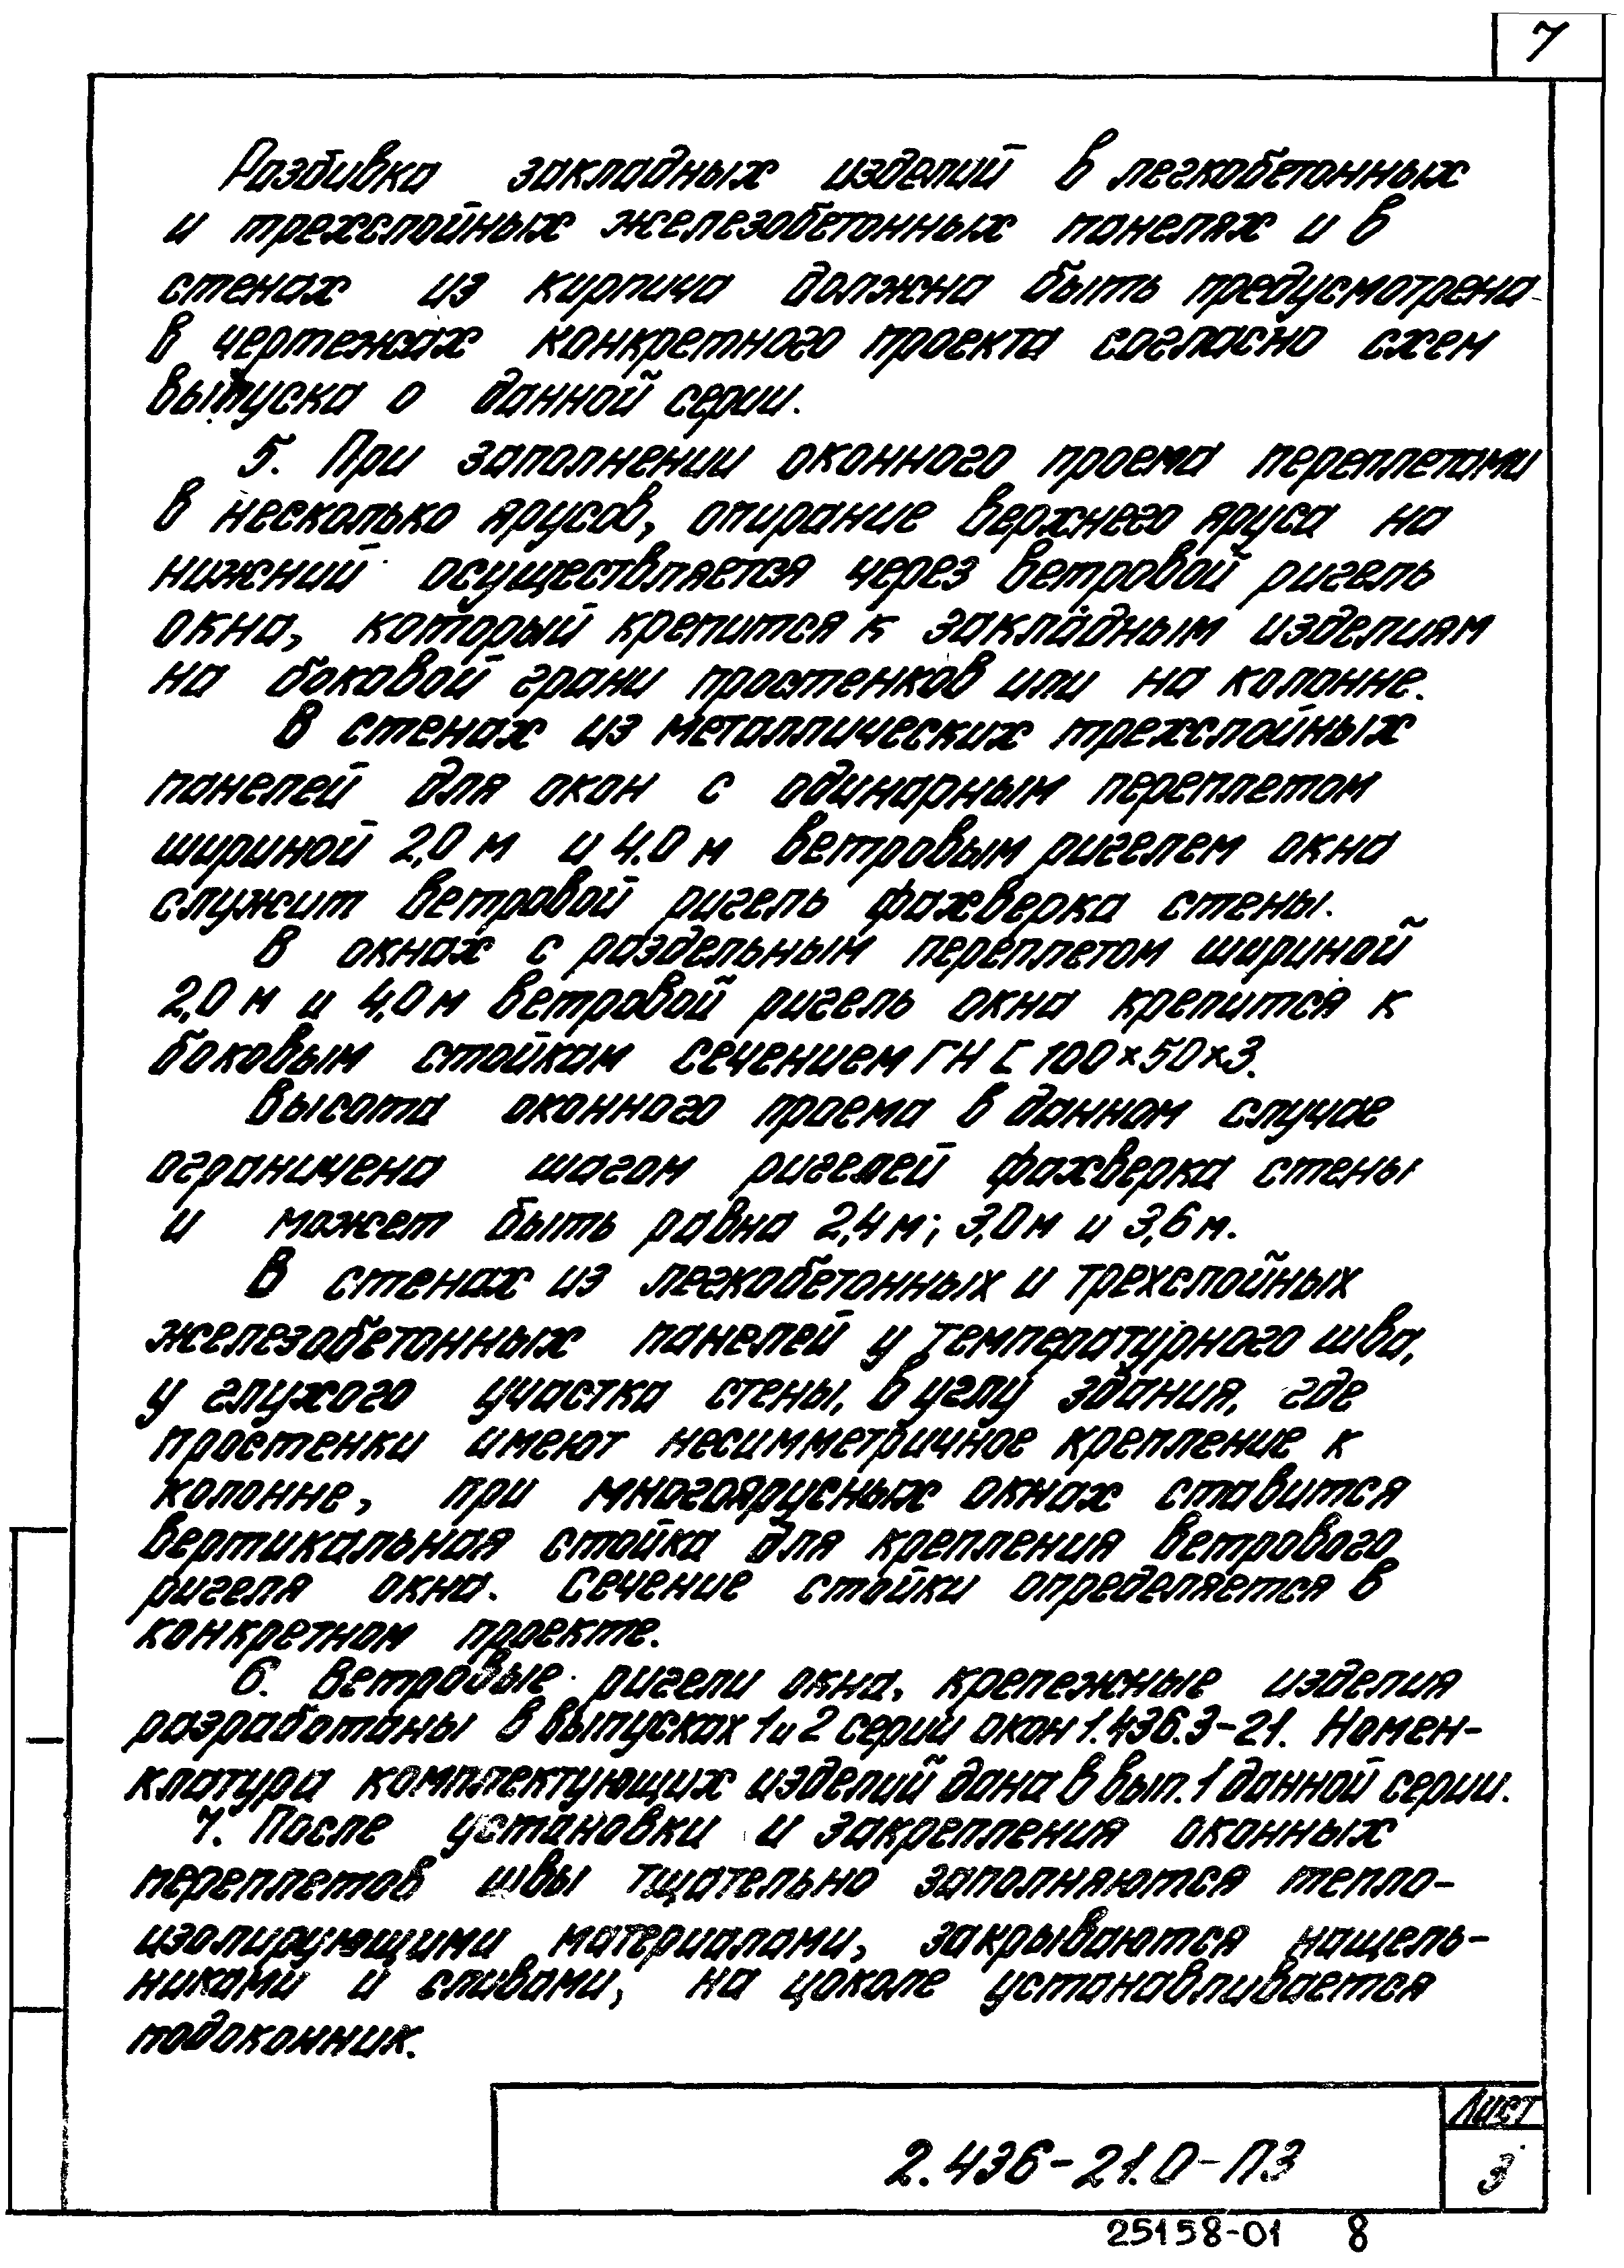 7
Разбивка закладных изделий в легкобетонных
и трехслойных железобетонных панелях и в
стенах из кирпича должна быть предусмотрена
в чертежах конкретного проекта согласно схем
выпуска 0 данной серии.
5. При заполнении оконного проема переплетами
в несколько ярусов, опирание верхнего яруса на
нижний осуществляется через ветровой ригель
окна, который крепится к закладным изделиям
на боковой грани простенков или на колонне.
В стенах из металлических трехслойных
панелей для окон с одинарным переплетом
шириной 2,0 м и 4.0 м ветровым ригелем окна
служит ветровой ригель фахверка стены.
В окнах с раздельным переплетом шириной
2,0 м и 4,0 м ветровой ригель окна крепится к
боковым стойкам сечением ГН [ 100×50×3.
Высота оконного проема в данном случае
ограничена шагом ригелей фахверка стены
и может быть равна 2,4 м; 3,0 м и 3,6 м.
В стенах из легкобетонных и трехслойных
железобетонных панелей у температурного шва,
у глухого участка стены, в углу здания, где
простенки имеют несимметричное крепление к
колонне, при многоярусных окнах ставится
вертикальная стойка для крепления ветрового
ригеля окна. Сечение стойки определяется в
конкретном проекте.
6. Ветровые ригели окна, крепежные изделия
разработаны в выпусках 1 и 2 серии окон 1.436.3-21. Номен-
клатура комплектующих изделий дана в вып. 1 данной серии.
7. После установки и закрепления оконных
переплетов швы тщательно заполняются тепло-
изолирующими материалами, закрываются нащель-
никами и сливами, на цоколе устанавливается
подоконник.
2.436-21.0-ПЗ
Лист
3
25158-01 8